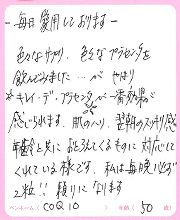 －毎日愛用しております－
色々なサプリ、色々なプラセンタを
飲んできました…が やはり
＊キレイ・デ・プラセンタが一番効果が
感じられます。肌のハリ、翌朝のスッキリ感
年齢と共におとろえてくるものに対応して
くれている様です。私は毎晩必ず
2粒!! 頼りになります
ペンネーム( COQ10 ) 年齢( 50 歳)